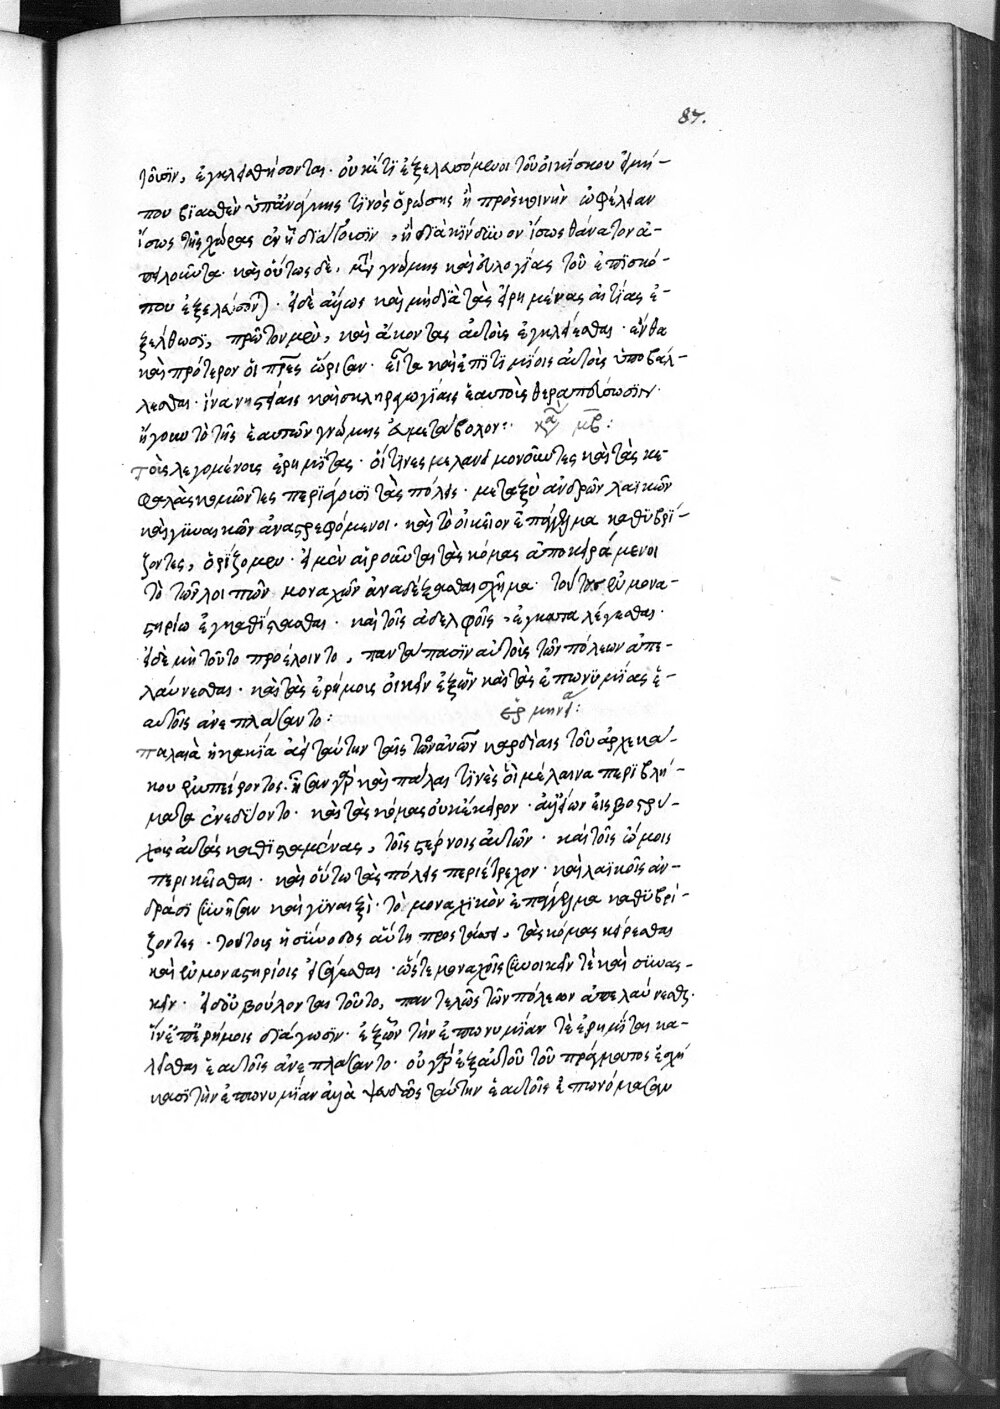 87.
τῶσιν, ἐγκλεισθήσονται· οὐκέτι ἐξελευσόμενοι τοῦ οἰκίσκου εἰ μή
που βιασθὲν ὑπ' ἀνάγκης τινὸς ὁρώσης ἢ πρὸς κοινὴν ὠφέλειαν
ἴσως τῆς χώρας ἐν ᾗ διαιτῶσιν, ἢ διὰ κίνδυνον ἴσως θάνατον ἀ-
πειλοῦντα· καὶ οὕτως δὲ, μετὰ γνώμης καὶ εὐλογίας τοῦ ἐπισκό-
που ἐξελεύσονται· εἰ δὲ ἄλλως καὶ μὴ διὰ τὰς εἰρημένας αἰτίας ἐ-
ξέλθωσι, πρῶτον μὲν, καὶ ἄκοντας αὐτοὺς ἐγκλείεσθαι· ἔνθα
καὶ πρότερον οἱ πρες ὥρισαν· εἶτα καὶ ἐπιτιμίοις αὐτοὺς ὑποβάλ-
λεσθαι· ἵνα νηστείαις καὶ σκληραγωγίαις ἑαυτοὺς θεραπεύσωσιν·
ἤγουν τὸ τῆς ἑαυτῶν γνώμης εὐμετάβολον: κα μβ:
τοὺς λεγομένους ἐρημίτας· οἵτινες μελανειμονοῦντες καὶ τὰς κε-
φαλὰς κομῶντες περιάγουσι τὰς πόλεις· μεταξὺ ἀνδρῶν λαϊκῶν
καὶ γυναικῶν ἀναστρεφόμενοι· καὶ τὸ οἰκεῖον ἐπάγγελμα καθυβρί-
ζοντες, ὁρίζομεν· εἰ μὲν αἱροῦνται τὰς κόμας ἀποκειράμενοι
τὸ τῶν λοιπῶν μοναχῶν ἀναδέξασθαι σχῆμα· τούτους ἐν μονα-
στηρίῳ ἐγκαθίστασθαι· καὶ τοῖς ἀδελφοῖς ἐγκαταλέγεσθαι·
εἰ δὲ μὴ τοῦτο προέλοιντο, παντάπασιν αὐτοὺς τῶν πόλεων ἀπε-
λαύνεσθαι· καὶ τὰς ἐρήμους οἰκεῖν ἐξ ὧν καὶ τὰς ἐπωνυμίας ἑ-
αυτοῖς ἀνεπλάσαντο: ἑρμηνεία:
παλαιὰ ἡ κακία ἀεὶ ταύτην ταῖς τῶν ἀνων καρδίαις τοῦ ἀρχεκά-
κου ἐνσπείροντος· ἦσαν γὰρ καὶ πάλαι τινὲς οἳ μέλαινα περιβλή-
ματα ἐνεδέοντο· καὶ τὰς κόμας οὐκ ἔκειρον· ἀλλ' ἐῶν εἰς βοστρύ-
χους αὐτὰς καθισταμένας, τοῖς στέρνοις αὐτῶν· καὶ τοῖς ὤμοις
περικεῖσθαι· καὶ οὕτω τὰς πόλεις περιέτρεχον· καὶ λαϊκοῖς ἀν-
δράσι συνῆσαν καὶ γυναιξὶ· τὸ μοναχικὸν ἐπάγγελμα καθυβρί-
ζοντες· τούτοις ἡ σύνοδος αὕτη προστάττει, τὰς κόμας κείρεσθαι
καὶ ἐν μοναστηρίοις εἰσάγεσθαι· ὥστε μοναχοῖς συνοικεῖν τὲ καὶ συνασ-
κεῖν· εἰ δ' οὐ βούλονται τοῦτο, παντελῶς τῶν πόλεων ἀπελαύνεσθαι·
ἵν' ἐπ' ἐρήμοις διάγωσιν· ἐξ ὧν τὴν ἐπωνυμίαν τὲ ἐρημῖται κα-
λεῖσθαι ἑαυτοῖς ἀνεπλάσαντο· οὐ γὰρ ἐξ αὐτοῦ τοῦ πράγματος ἐσχή-
κασι τὴν ἐπωνυμίαν ἀλλὰ ψευδῶς ταύτην ἑαυτοῖς ἐπωνόμασαν